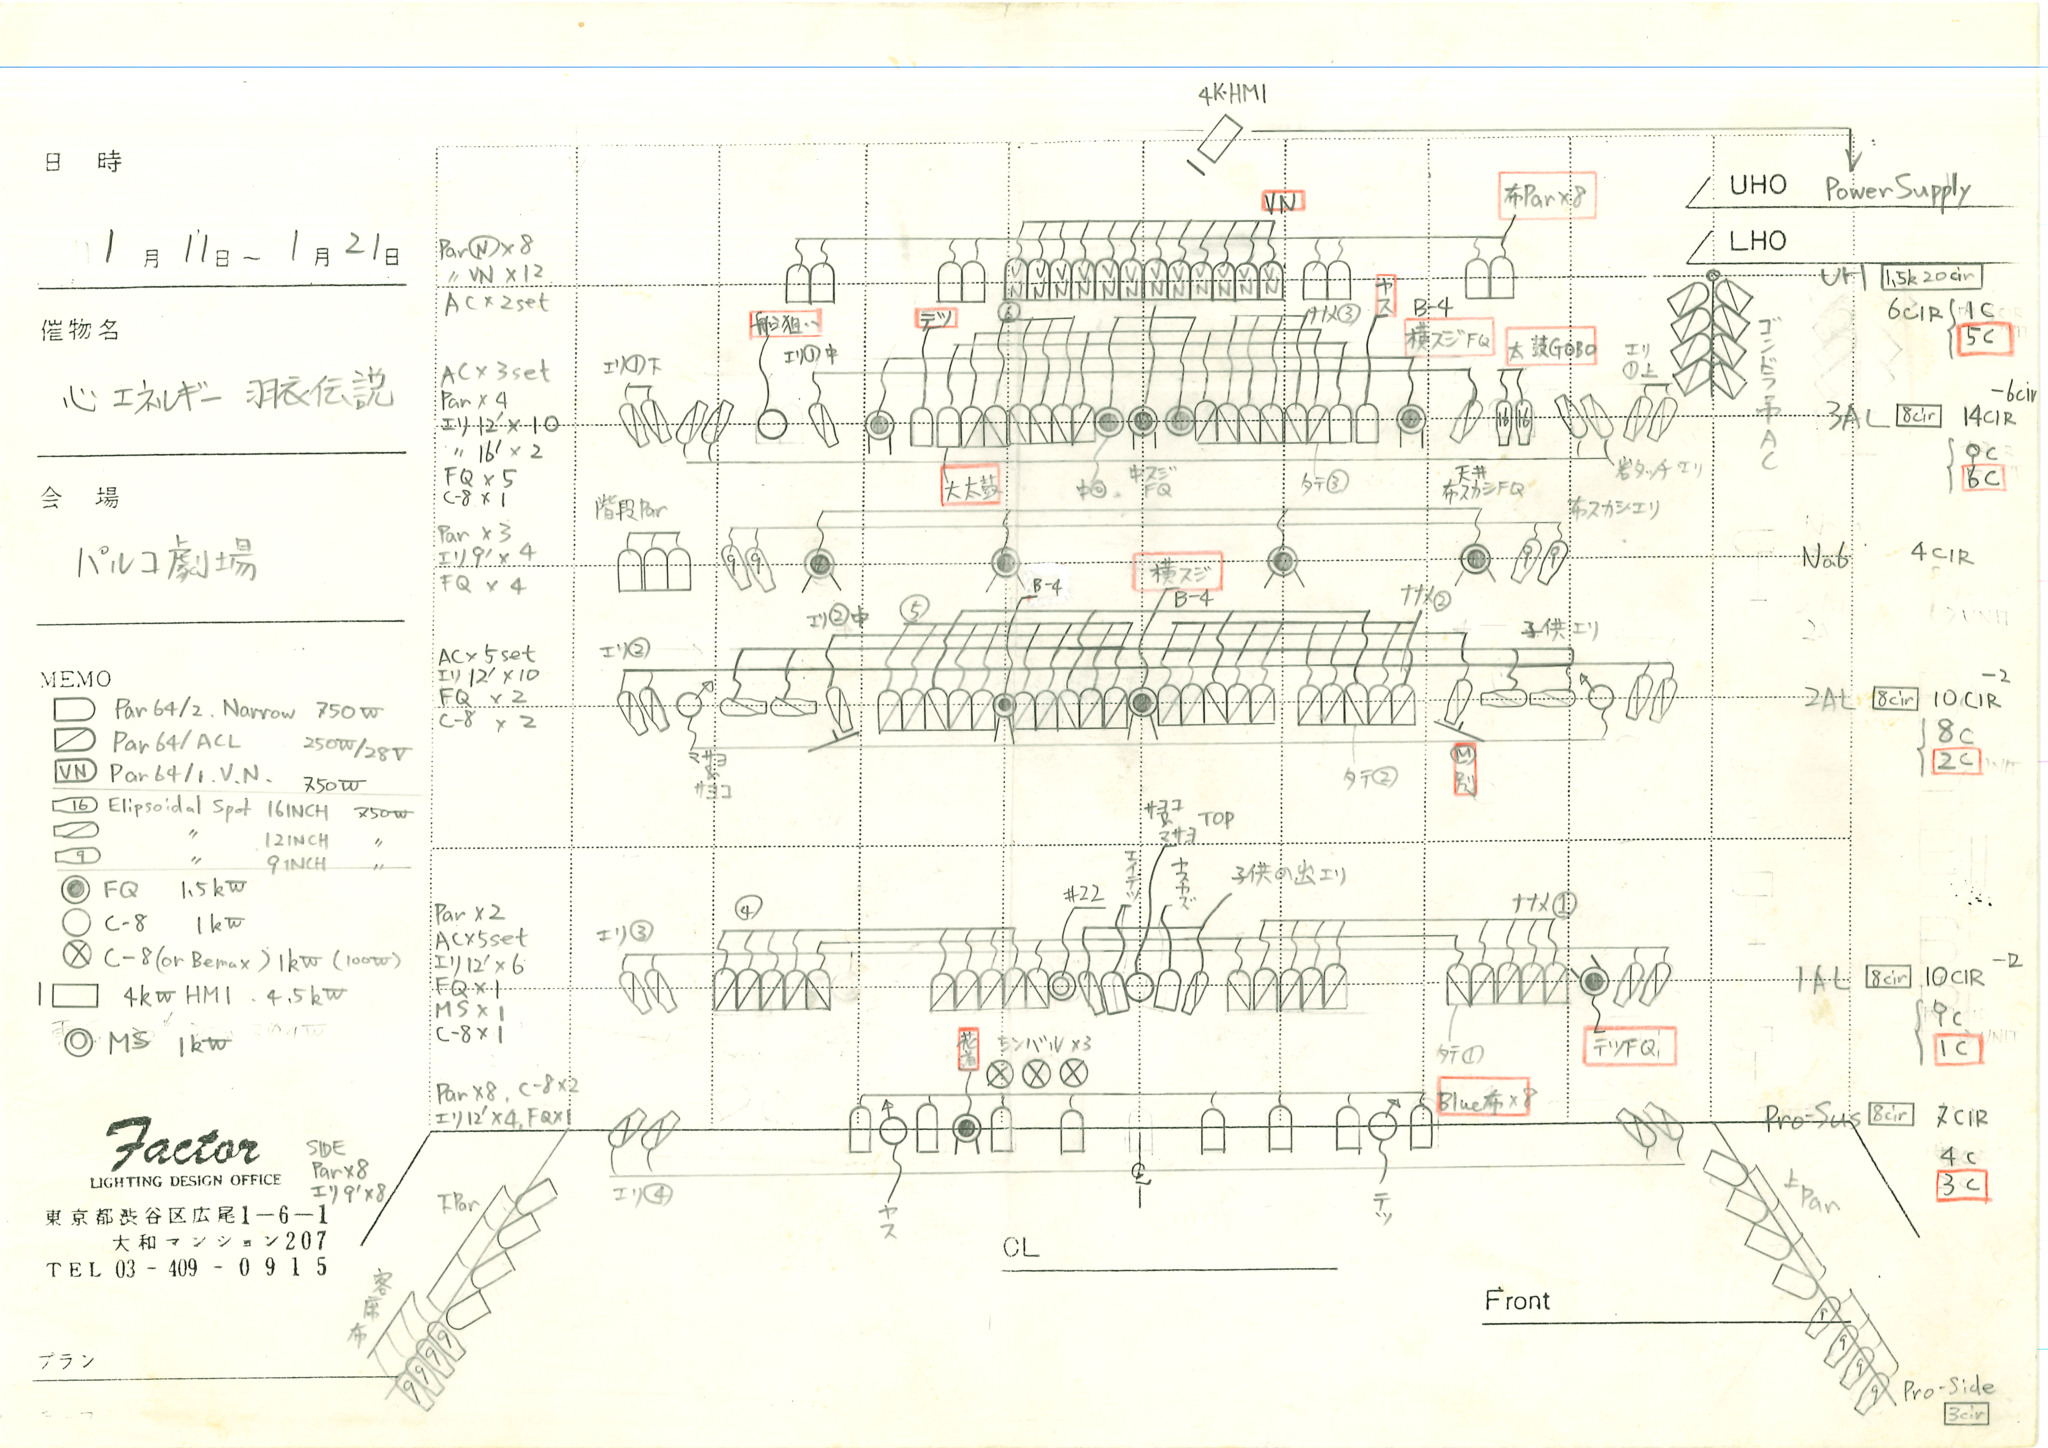 4K·HMI
日 時
1月17日～1月21日
催物名
心エネルギー 羽衣伝説
会 場
パルコ劇場
MEMO
Par 64/2. Narrow 750W
Par 64/ACL 250W/28V
VN Par 64/1. V.N. 750W
16 Elipsoidal Spot 16INCH 750W
〃 12INCH 〃
9 〃 9INCH 〃
FQ 1.5kW
C-8 1kW
C-8(or Bemax) 1kW (100W)
4kW HMI . 4.5kW
MS 1kW
Factor
LIGHTING DESIGN OFFICE
東京都渋谷区広尾1-6-1
大和マンション207
TEL 03-409-0915
プラン
UHO Power Supply
LHO
VN
布Par×8
Par Ⓝ×8
〃 VN×12
AC×2set
UH 1.5k20cir
6CIR
1C
5C
船狙い
テツ
⑥
ナナメ③
ヤス
B-4
横スジFQ
太鼓GOBO
エリ①下
エリ①中
エリ①上
ゴンドラ吊AC
AC×3set
Par×4
エリ12'×10
〃 16'×2
FQ×5
C-8×1
16 16
3AL 8cir 14CIR
-6cir
9C
6C
大太鼓
中スジFQ
タテ③
天井
布スカシFQ
岩タッチエリ
階段Par
布スカシエリ
Par×3
エリ9'×4
FQ×4
9 9
9 9
4CIR
横スジ
B-4
B-4
エリ②
エリ②中
⑤
ナナメ②
子供エリ
AC×5set
エリ12'×10
FQ×2
C-8×2
2AL 8cir 10CIR
-2
8C
2C
マサヨ
サヨコ
タテ②
サヨコ
マサヨ
TOP
エイテツ
ヤスカズ
子供の出エリ
#22
エリ③
④
ナナメ①
Par×2
AC×5set
エリ12'×6
FQ×1
MS×1
C-8×1
1AL 8cir 10CIR
-2
9C
1C
タテ①
テツFQ
花道
キンバル×3
Blue布×8
Par×8, C-8×2
エリ12'×4, FQ×1
Pro-Sus 8cir 7CIR
4C
3C
SIDE
Par×8
エリ9'×8
エリ④
ヤス
テツ
下Par
上Par
客席布
9 9 9 9
9 9 9 9
CL
Front
Pro-Side
3cir